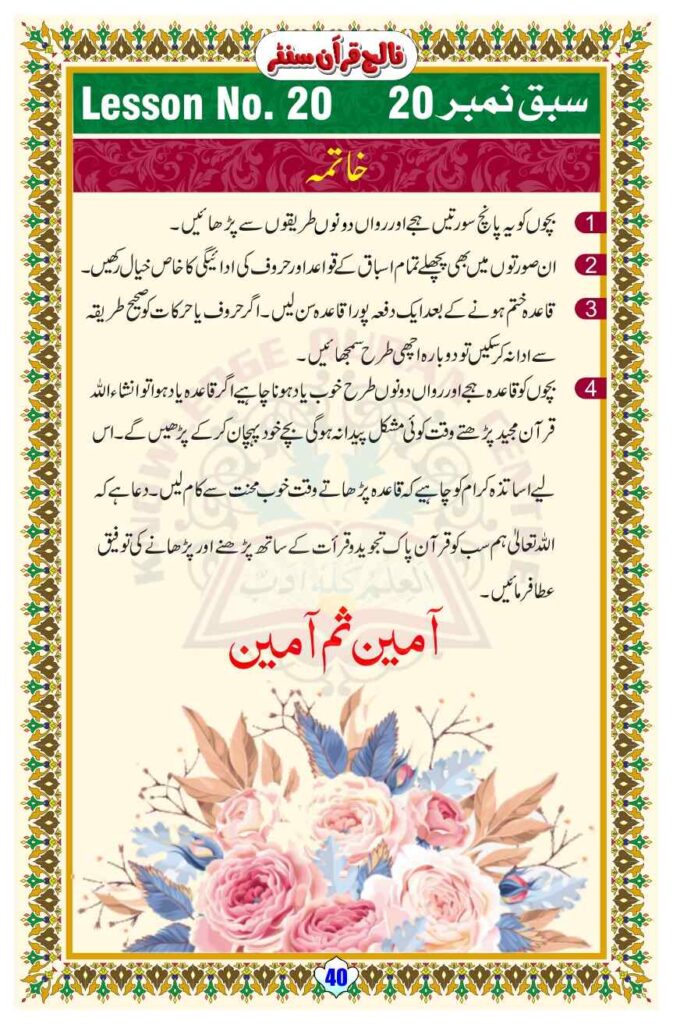 نالج قرآن سنٹر
Lesson No. 20 سبق نمبر 20
خاتمہ
1 بچوں کو یہ پانچ سورتیں ہجے اور رواں دونوں طریقوں سے پڑھائیں۔
2 ان صورتوں میں بھی پچھلے تمام اسباق کے قواعد اور حروف کی ادائیگی کا خاص خیال رکھیں۔
3 قاعدہ ختم ہونے کے بعد ایک دفعہ پورا قاعدہ سن لیں۔ اگر حروف یا حرکات کو صحیح طریقہ
سے ادا نہ کر سکیں تو دوبارہ اچھی طرح سمجھائیں۔
4 بچوں کو قاعدہ ہجے اور رواں دونوں طرح خوب یاد ہونا چاہیے اگر قاعدہ یاد ہوا تو انشاء اللہ
قرآن مجید پڑھتے وقت کوئی مشکل پیدا نہ ہوگی بچے خود پہچان کر کے پڑھیں گے۔ اس
لیے اساتذہ کرام کو چاہیے کہ قاعدہ پڑھاتے وقت خوب محنت سے کام لیں۔ دعا ہے کہ
اللہ تعالیٰ ہم سب کو قرآن پاک تجوید و قرأت کے ساتھ پڑھنے اور پڑھانے کی توفیق
عطا فرمائیں۔
آمین ثم آمین
KNOWLEDGE QURAN CENTRE
العلم كله أدب
40